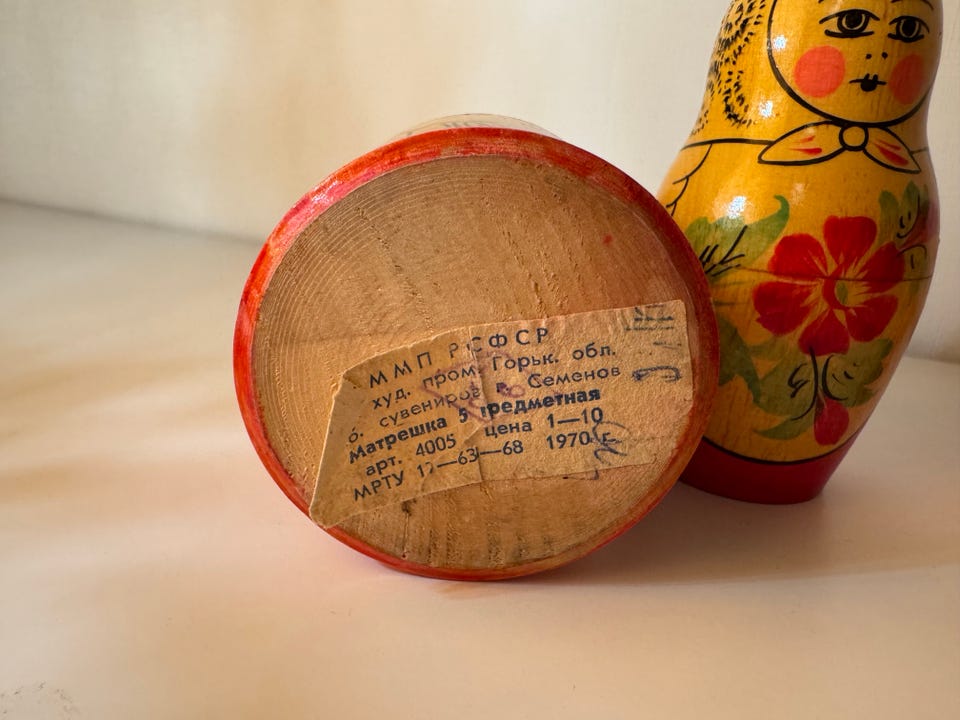 ММП РСФСР
худ. пром. Горьк. обл.
ф. сувениров г. Семенов
Матрешка 5 предметная
арт. 4005 цена 1—10
МРТУ 17—63—68 1970 г.